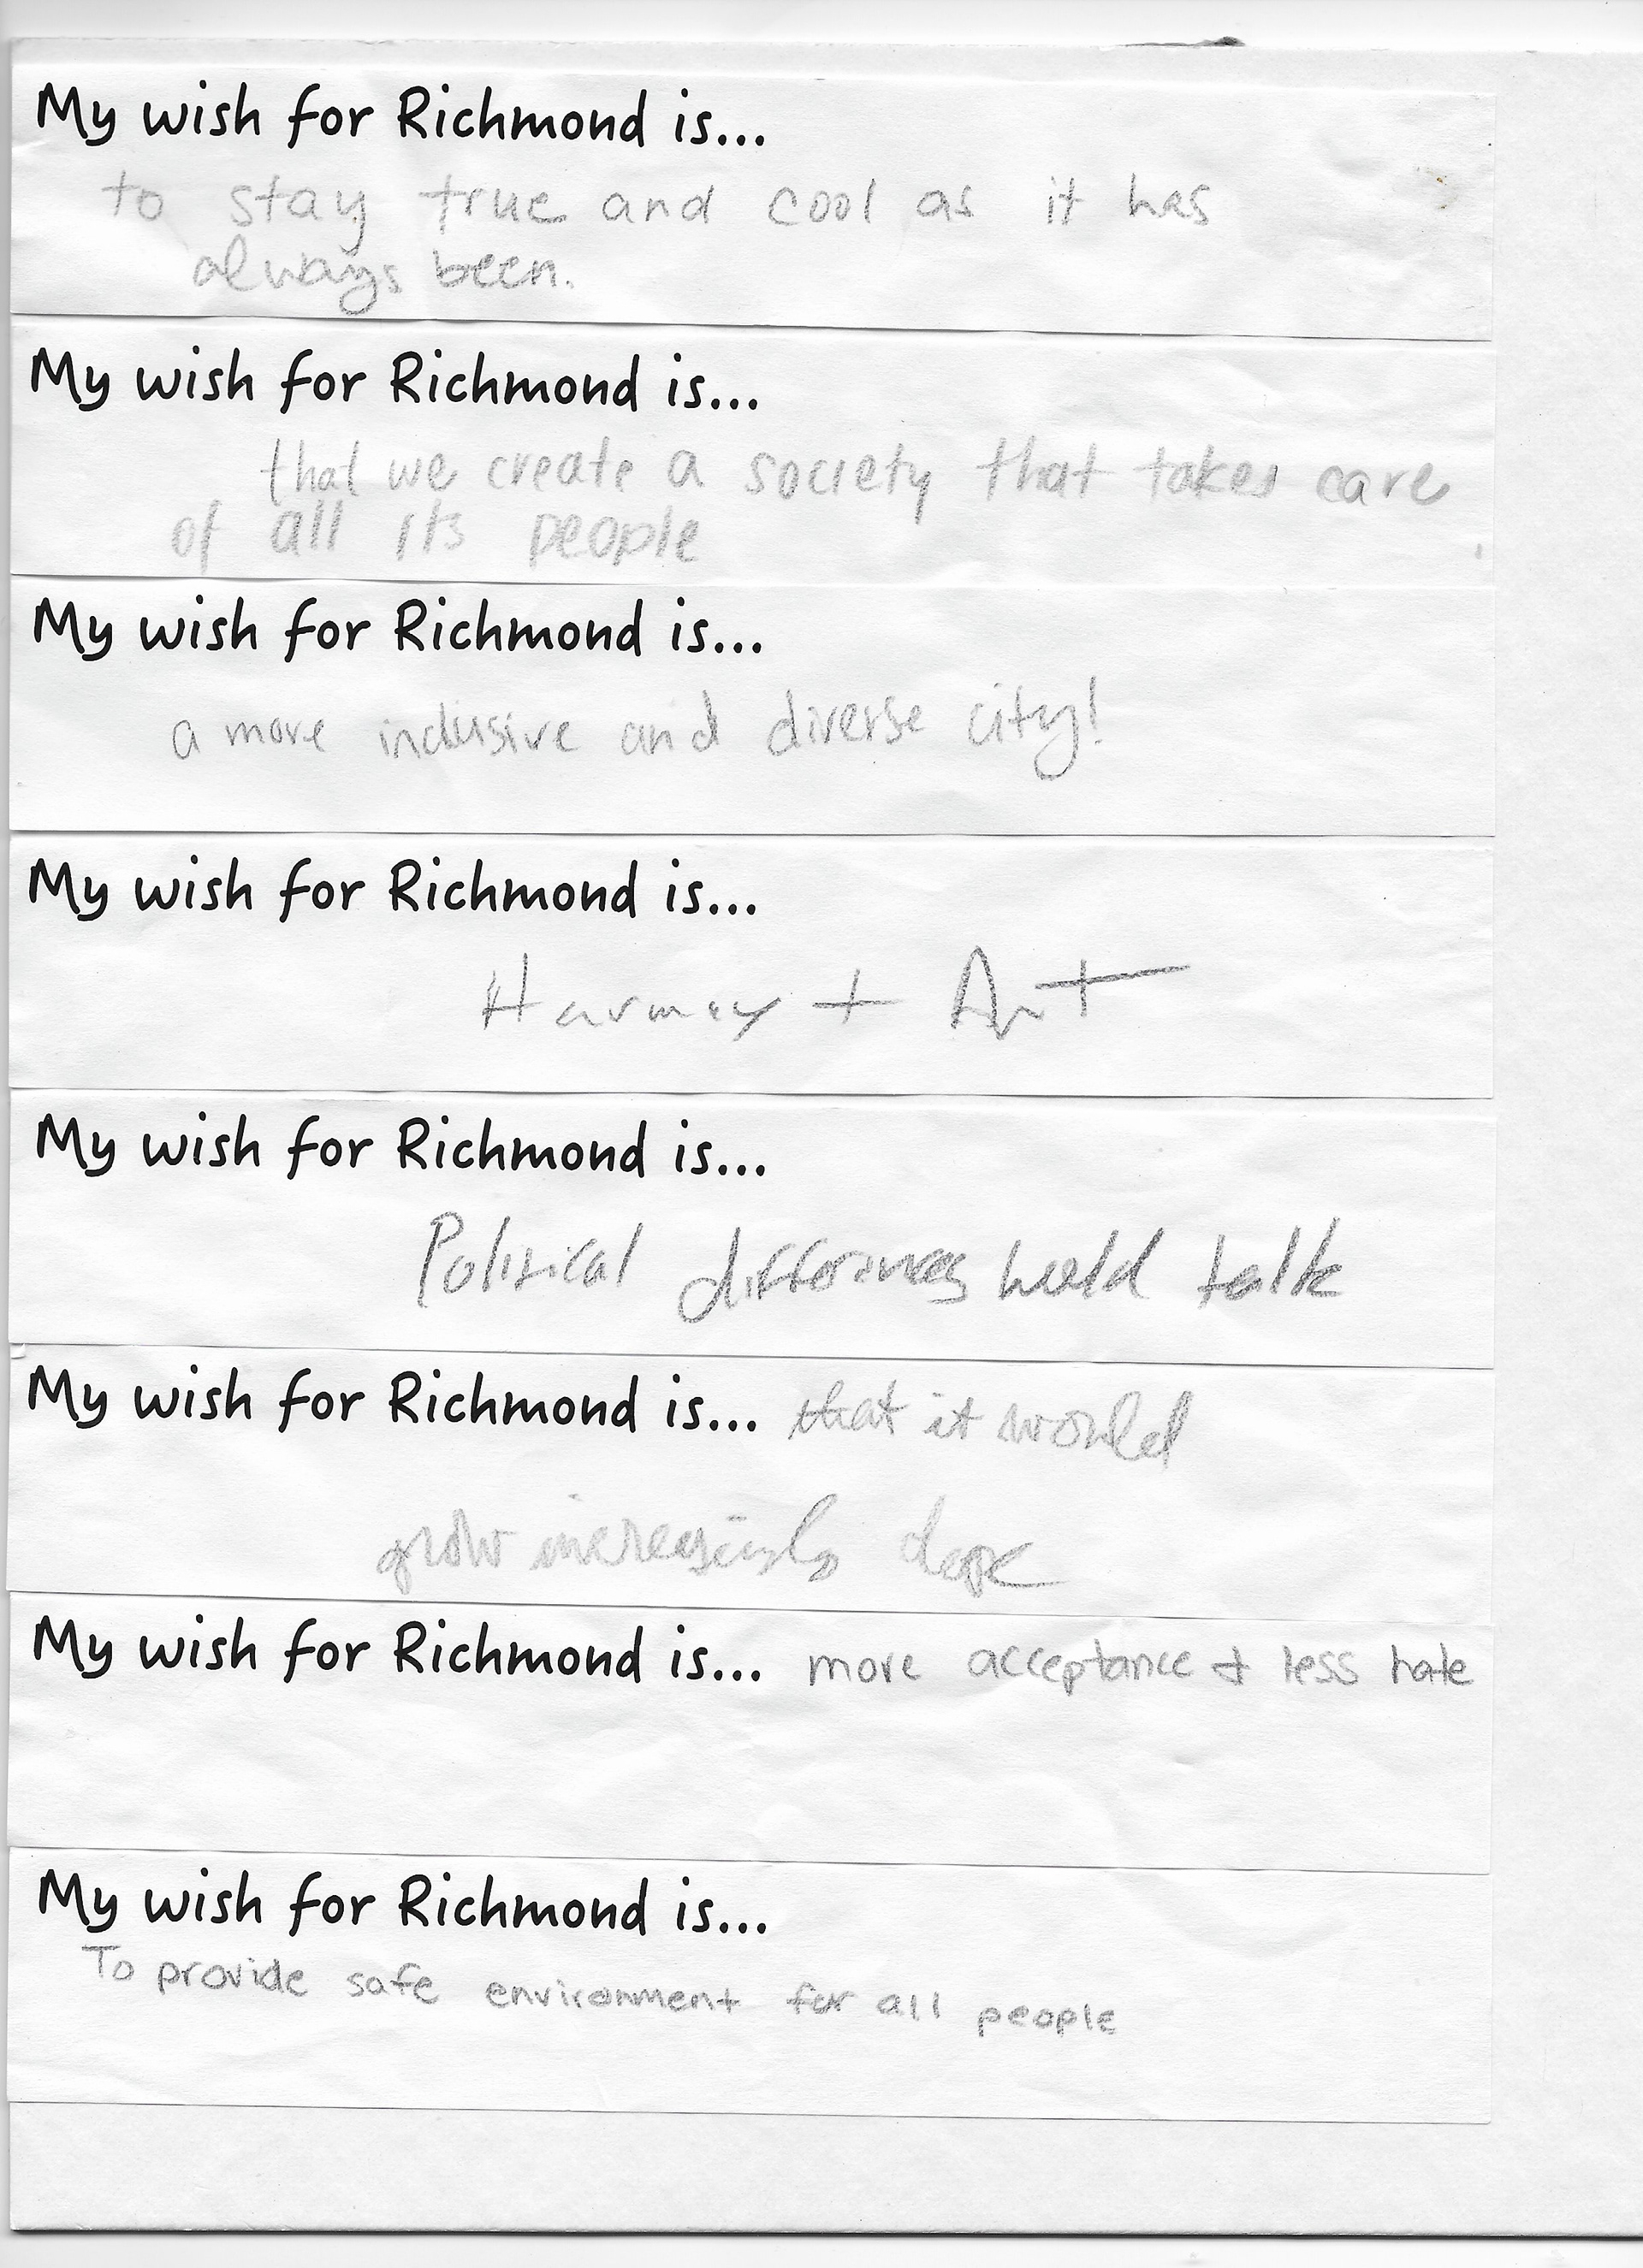 My wish for Richmond is...
to stay true and cool as it has
always been.
My wish for Richmond is...
that we create a society that takes care
of all its people
My wish for Richmond is...
a more inclusive and diverse city!
My wish for Richmond is...
Harmony + Art
My wish for Richmond is...
Political differences would talk
My wish for Richmond is... that it would
grow increasingly dope
My wish for Richmond is... more acceptance + less hate
My wish for Richmond is...
To provide safe environment for all people